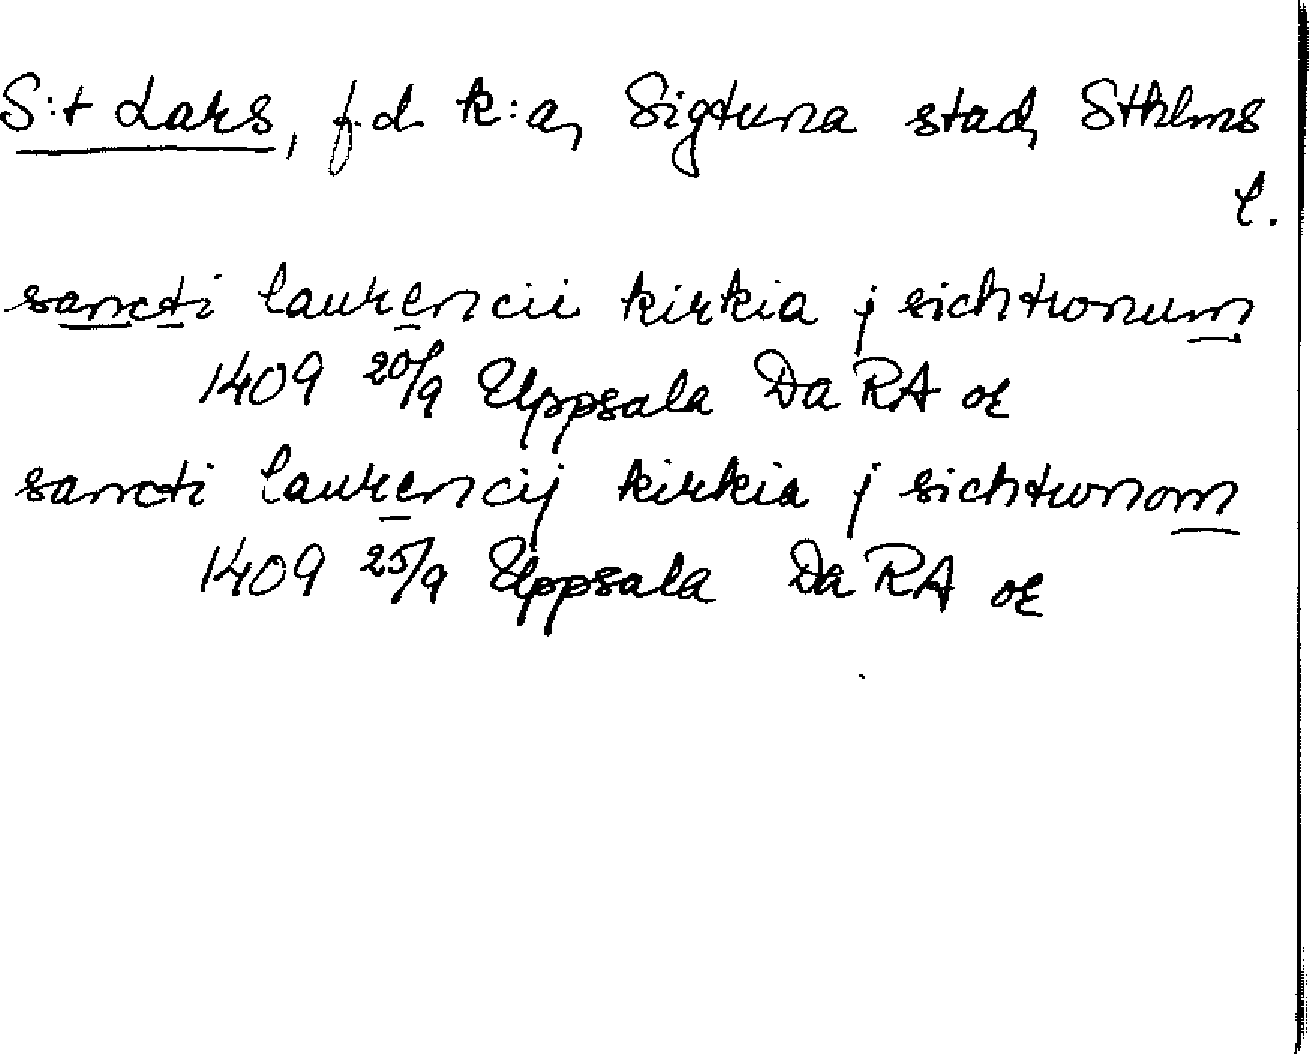 S:t Lars, f.d. k:a, Sigtuna stad, Sthlms
l.
sancti laurencii kirkia j sichtwnum
1409 20/9 Uppsala Da RA or
sancti laurencij kirkia j sichtwnom
1409 25/9 Uppsala Da RA or